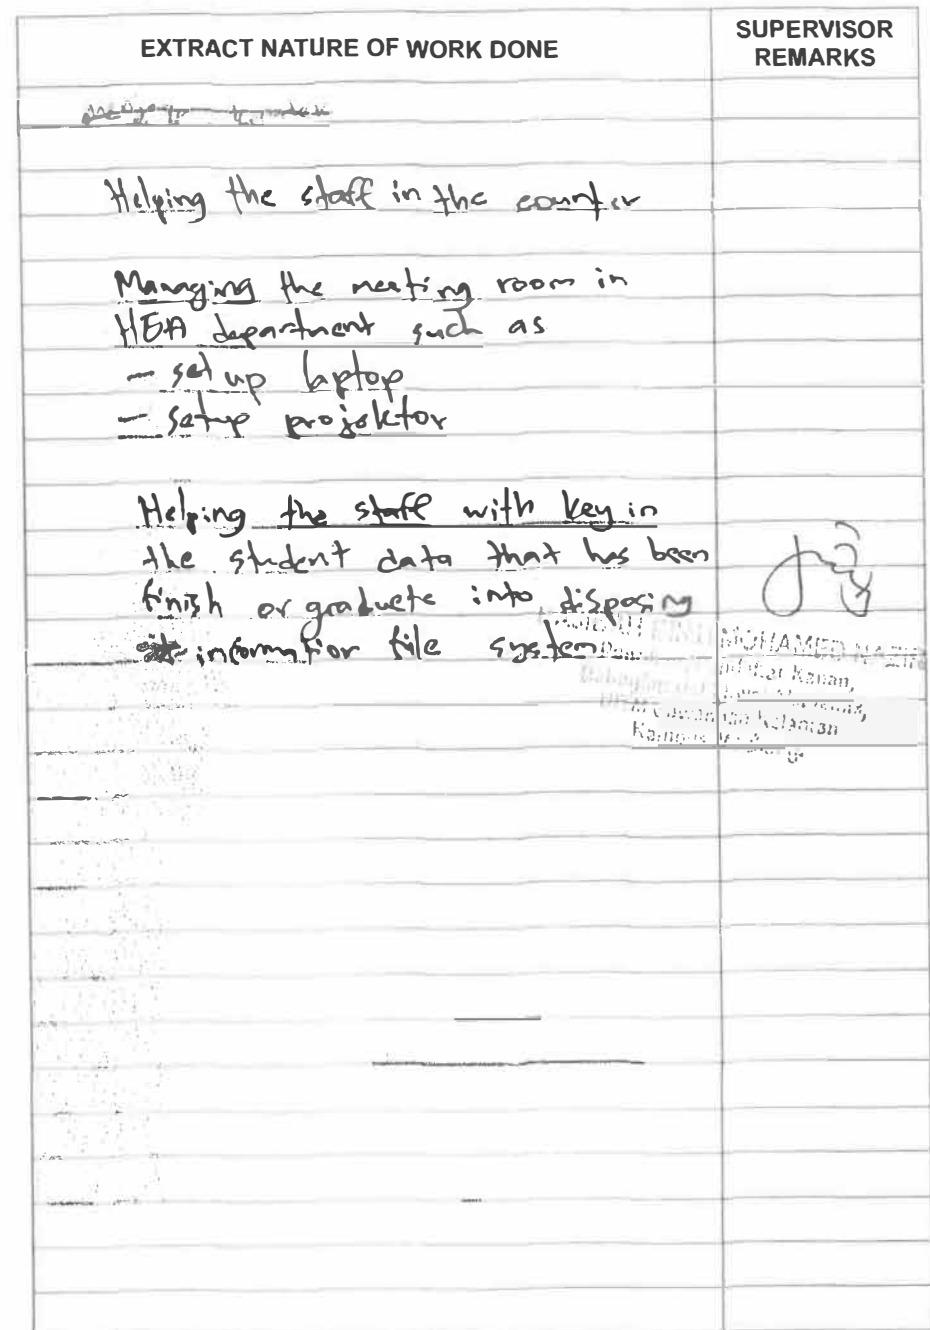 EXTRACT NATURE OF WORK DONE
SUPERVISOR
REMARKS
Helping the staff in the counter
Managing the meeting room in
HEA department such as
- set up laptop
- setup projektor
Helping the staff with key in
the student data that has been
finish or graduate into disposing
information file system
MOHAMED
Kanan,
Kelantan